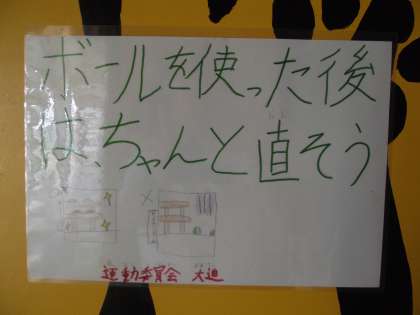 ボールを使った後
は、ちゃんと直そう
運動委員会 大迫